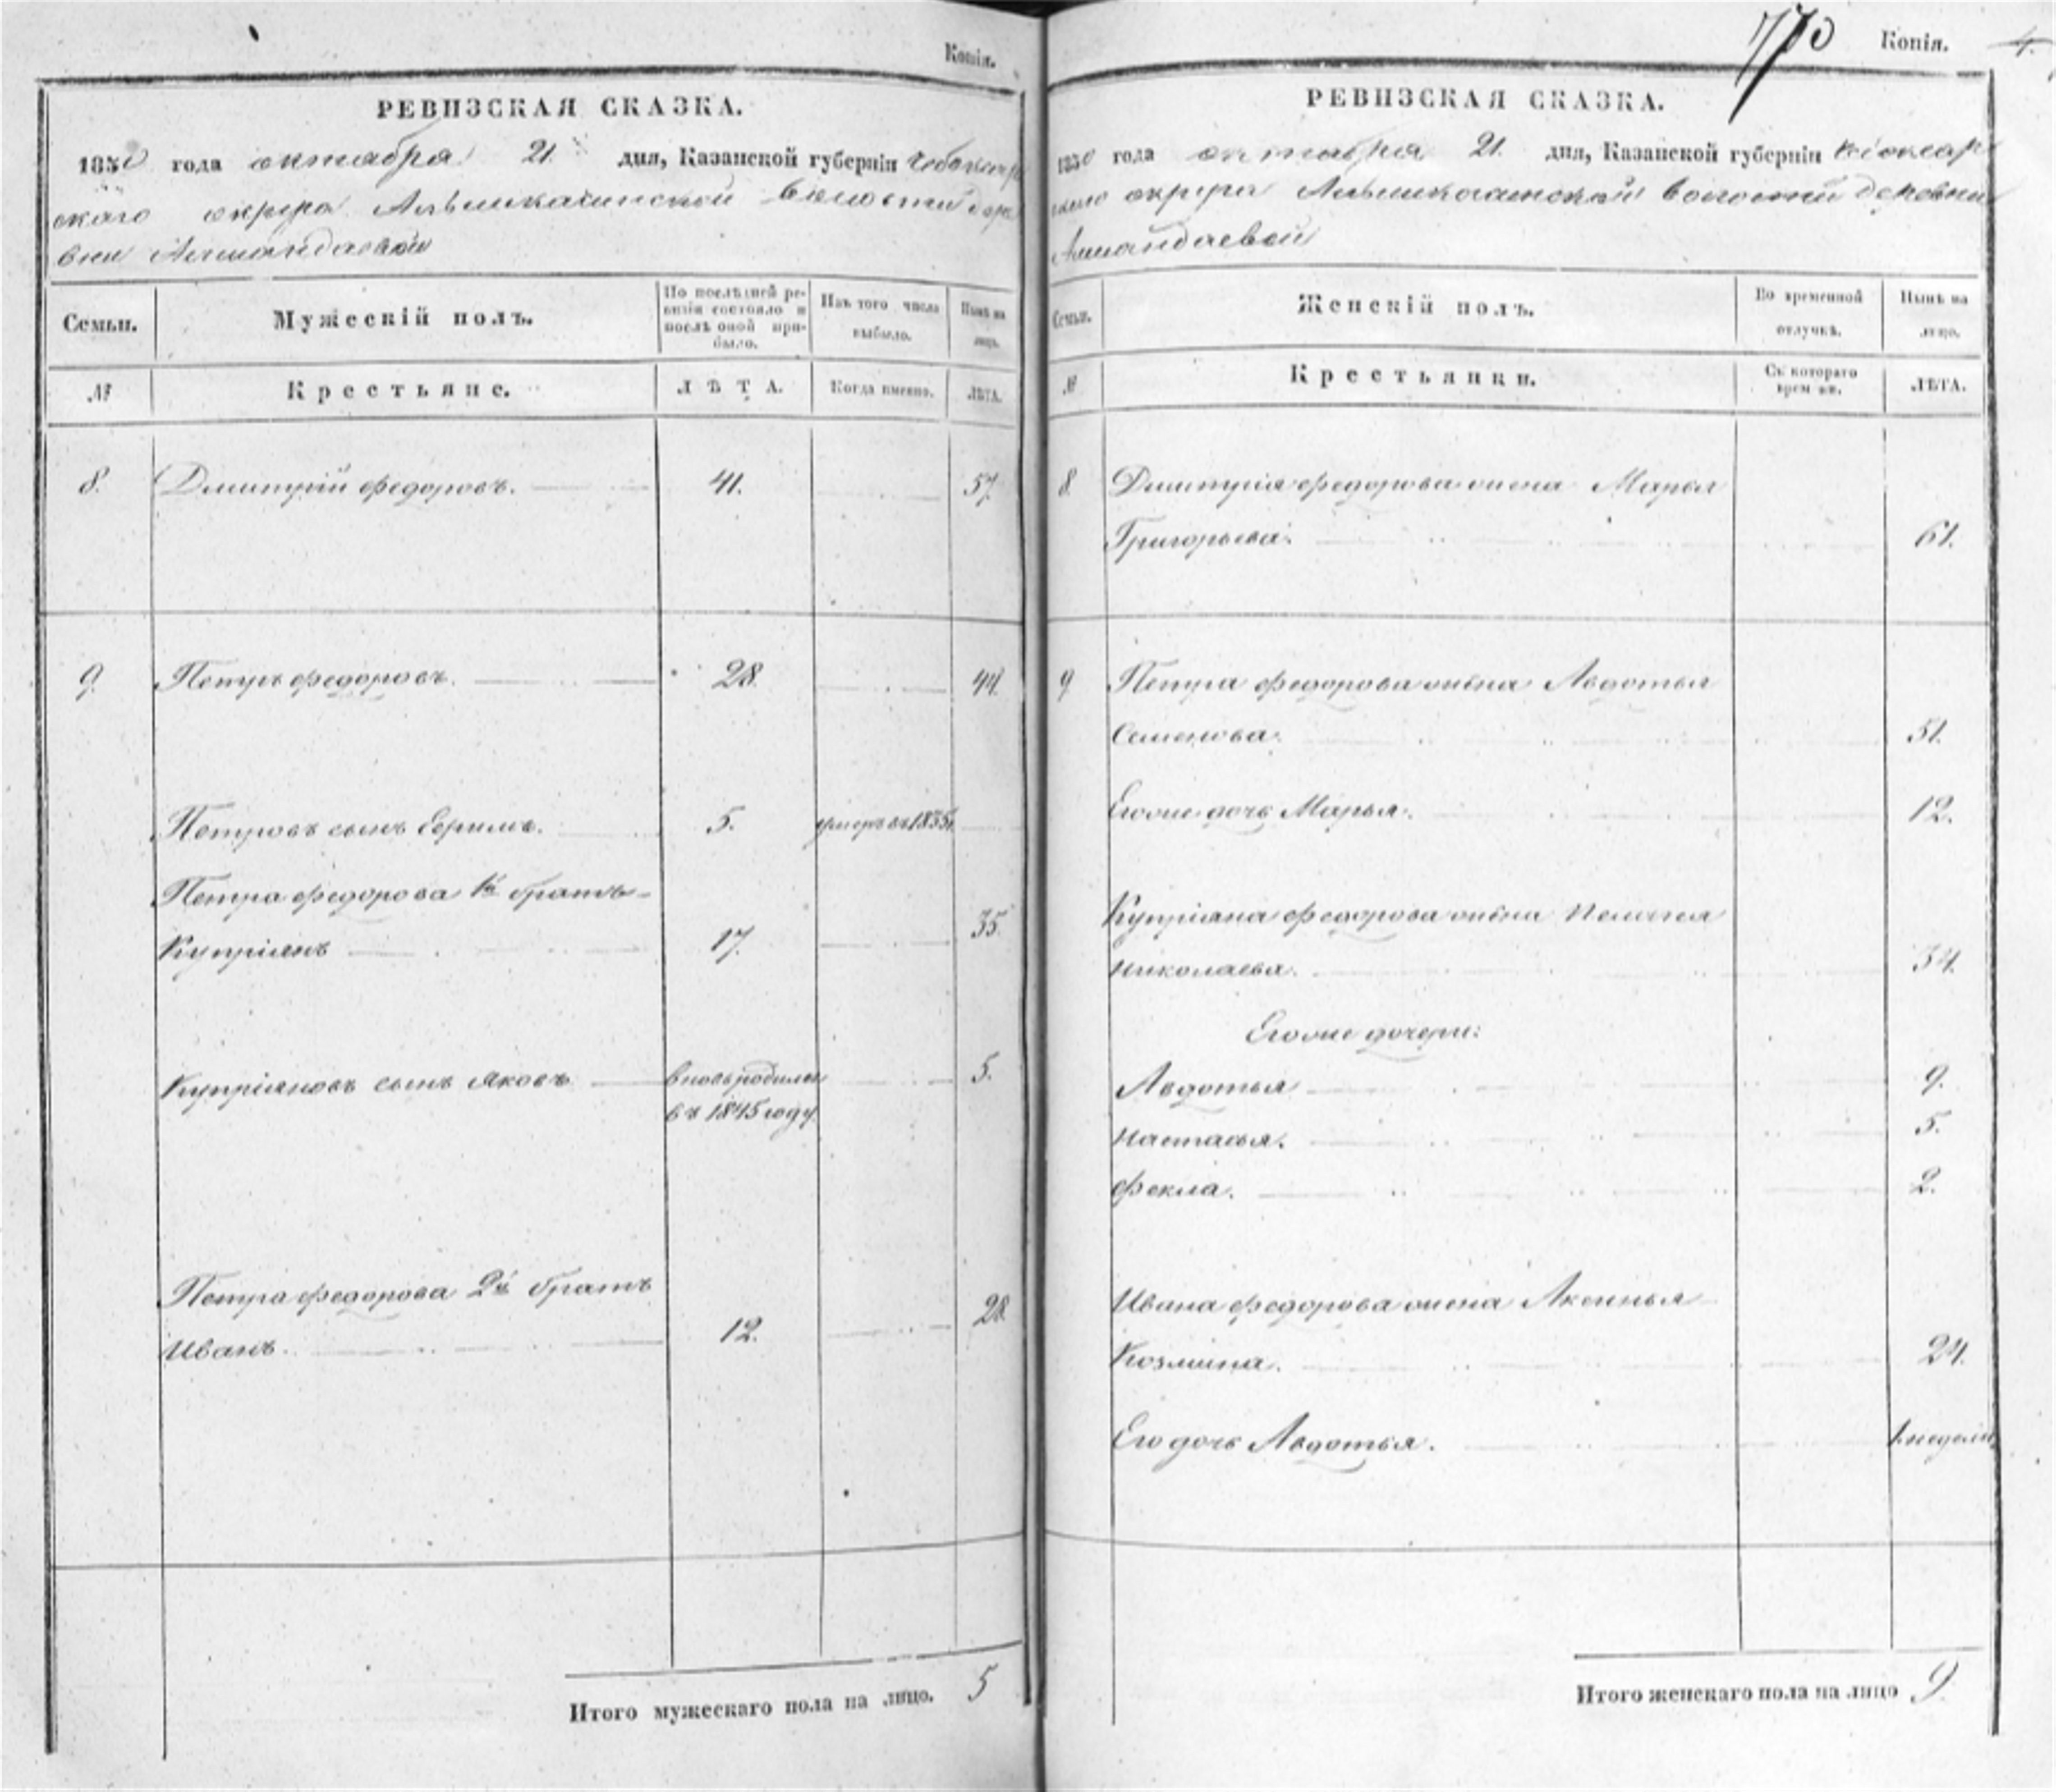 Копія.
РЕВИЗСКАЯ СКАЗКА.
1850 года октября 21 дня, Казанской губерніи Чебоксар
скаго округа волости дере
вни
Семьи.
Мужескій полъ.
По послѣдней ре-
визіи состояло и
послѣ оной при-
было.
Изъ того числа
выбыло.
Нынѣ на
лицо.
№
Крестьяне.
ЛѢТА.
Когда именно.
ЛѢТА.
8. Дмитрій Федоровъ. 41. 57.
9. Петръ Федоровъ. 28. 44.
Петровъ сынъ 5. умеръ въ
Петра Федорова 1й братъ
Купріянъ 17. 35.
Купріяновъ сынъ Яковъ вновь родился 5.
въ 1845 году
Петра Федорова 2й братъ
Иванъ. 12. 28.
Итого мужескаго пола на лицо. 5
770 Копія. 4.
РЕВИЗСКАЯ СКАЗКА.
1850 года октября 21. дня, Казанской губерніи
скаго округа волости деревни
Семьи.
Женскій полъ.
Во временной
отлучкѣ.
Нынѣ на
лицо.
№
Крестьянки.
Съ котораго
времени.
ЛѢТА.
8 Дмитрія Федорова жена Марья
Григорьева. 61.
9 Петра Федорова жена Авдотья
Семенова. 51.
Егоже дочь Марья. 12.
Купріяна Федорова жена Пелагея
Николаева. 34.
Егоже дочери:
Авдотья 9.
Настасья. 5.
Фекла. 2.
Ивана Федорова жена Аксинья
Козмина. 24.
Его дочь Авдотья. недели
Итого женскаго пола на лицо 9.